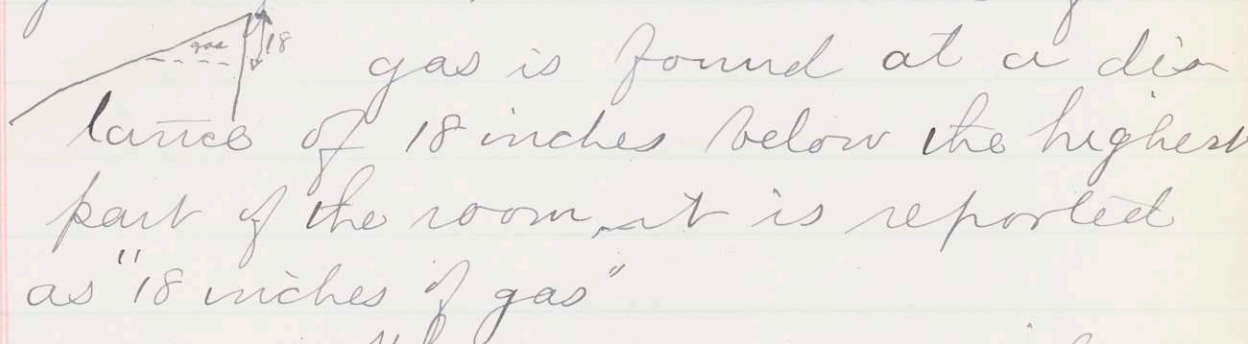 gas 18
gas is found at a dis
tance of 18 inches below the highest
part of the room, it is reported
as "18 inches of gas"